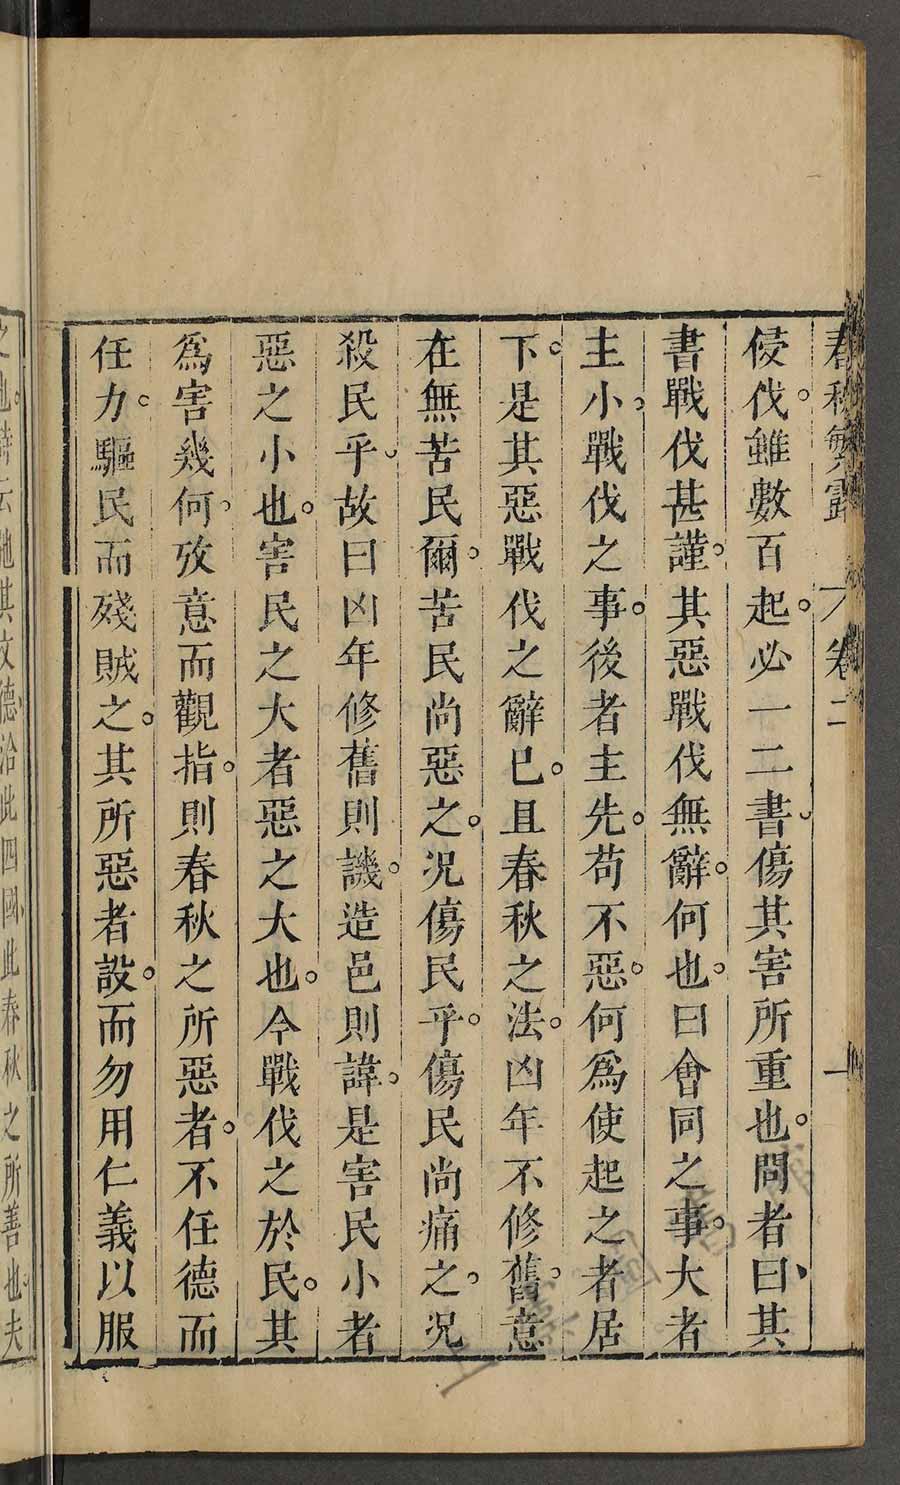 春秋繁露 卷二 一
侵伐。雖數百起。必一二書、傷其害所重也。問者曰、其
書戰伐甚謹。其惡戰伐無辭。何也。曰會同之事。大者
主小、戰伐之事。後者主先。苟不惡。何爲使起之者居
下。是其惡戰伐之辭已。且春秋之法。凶年不修舊。意
在無苦民爾。苦民尚惡之。况傷民乎。傷民尚痛之。况
殺民乎、故曰凶年修舊則譏。造邑則諱。是害民小者
惡之小也。害民之大者惡之大也。今戰伐之於民。其
爲害幾何。攷意而觀指。則春秋之所惡者。不任德而
任力。驅民而殘賊之。其所惡者設。而勿用仁義以服
之也。詩云弛其文德、洽此四國、此春秋之所善也。夫